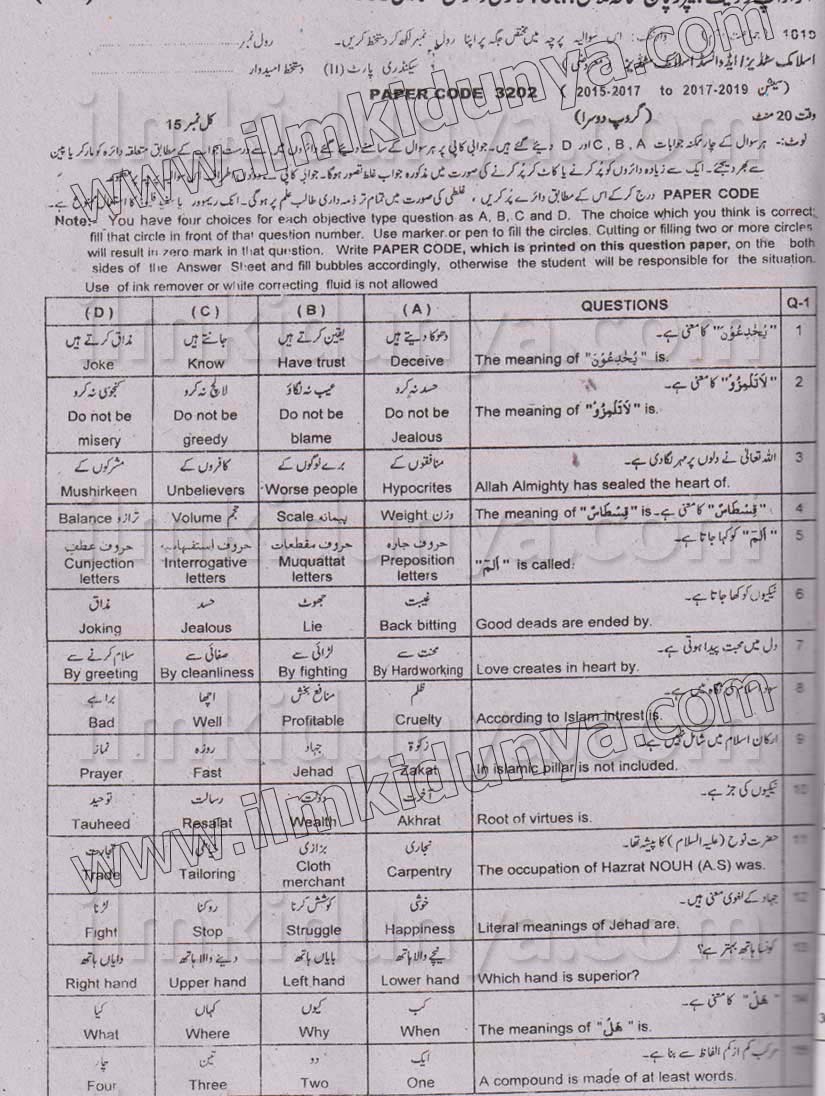 1619
اس سوالیہ پرچہ میں مختص جگہ پر اپنا رول نمبر لکھ کر دستخط کریں۔ رول نمبر
سیکنڈری پارٹ (II) دستخط امیدوار
PAPER CODE 3202 (سیشن 2015-2017 to 2017-2019)
وقت 20 منٹ (گروپ دوسرا) کل نمبر 15
درج کر کے اس کے مطابق دائرے پُر کریں، غلطی کی صورت میں تمام تر ذمہ داری طالب علم پر ہوگی۔ PAPER CODE
Note:- You have four choices for each objective type question as A, B, C and D. The choice which you think is correct;
fill that circle in front of that question number. Use marker or pen to fill the circles. Cutting or filling two or more circles
will result in zero mark in that question. Write PAPER CODE, which is printed on this question paper, on the both
sides of the Answer Sheet and fill bubbles accordingly, otherwise the student will be responsible for the situation.
Use of ink remover or white correcting fluid is not allowed
( D ) ( C ) ( B ) ( A ) QUESTIONS Q-1
مذاق کرتے ہیں جانتے ہیں یقین کرتے ہیں دھوکا دیتے ہیں "یُخٰدِعُوۡنَ" کا معنی ہے۔ 1
Joke Know Have trust Deceive The meaning of "یُخٰدِعُوۡنَ" is.
کنجوسی نہ کرو لالچ نہ کرو عیب نہ لگاؤ حسد نہ کرو "لَاتَلۡمِزُوۡ" کا معنی ہے۔ 2
Do not be Do not be Do not be Do not be The meaning of "لَاتَلۡمِزُوۡ" is.
misery greedy blame Jealous
مشرکوں کے کافروں کے برے لوگوں کے منافقوں کے اللہ تعالیٰ نے دلوں پر مہر لگا دی ہے۔ 3
Mushirkeen Unbelievers Worse people Hypocrites Allah Almighty has sealed the heart of.
Balance ترازو Volume حجم Scale پیمانہ Weight وزن The meaning of "قِسۡطَاسۡ" is "قِسۡطَاسۡ" کا معنی ہے۔ 4
حروف عطف حروف استفہام حروف مقطعات حروف جارہ "الٓمّٓ" کو کہا جاتا ہے۔ 5
Cunjection Interrogative Muquattat Preposition "الٓمّٓ" is called.
letters letters letters letters
مذاق حسد جھوٹ غیبت نیکیوں کو کھا جاتا ہے۔ 6
Joking Jealous Lie Back bitting Good deads are ended by.
سلام کرنے سے صفائی سے لڑائی سے محنت سے دل میں محبت پیدا ہوتی ہے۔ 7
By greeting By cleanliness By fighting By Hardworking Love creates in heart by.
برا ہے اچھا منافع بخش ظلم سود اسلام کی نگاہ میں ہے۔ 8
Bad Well Profitable Cruelty According to Islam intrest is.
نماز روزہ جہاد زکوٰۃ ارکان اسلام میں شامل نہیں ہے۔ 9
Prayer Fast Jehad Zakat In islamic pillar is not included.
توحید رسالت دولت آخرت نیکیوں کی جڑ ہے۔ 10
Tauheed Resalat Wealth Akhrat Root of virtues is.
تجارت بزازی نجاری حضرت نوح (علیہ السلام) کا پیشہ تھا۔ 11
Trade Tailoring Cloth merchant Carpentry The occupation of Hazrat NOUH (A.S) was.
لڑنا روکنا کوشش کرنا خوشی جہاد کے لغوی معنی ہیں۔ 12
Fight Stop Struggle Happiness Literal meanings of Jehad are.
دایاں ہاتھ دینے والا ہاتھ بایاں ہاتھ نیچے والا ہاتھ کونسا ہاتھ بہتر ہے؟ 13
Right hand Upper hand Left hand Lower hand Which hand is superior?
کیا کہاں کیوں کب "ھَلۡ" کا معنی ہے۔ 14
What Where Why When The meanings of "ھَلۡ" is.
چار تین دو ایک مرکب کم از کم الفاظ سے بنا ہے۔ 15
Four Three Two One A compound is made of at least words.
www.ilmkidunya.com
www.ilmkidunya.com
ilmkidunya.com
ilmkidunya.com
ilmkidunya.com
ilmkidunya.com